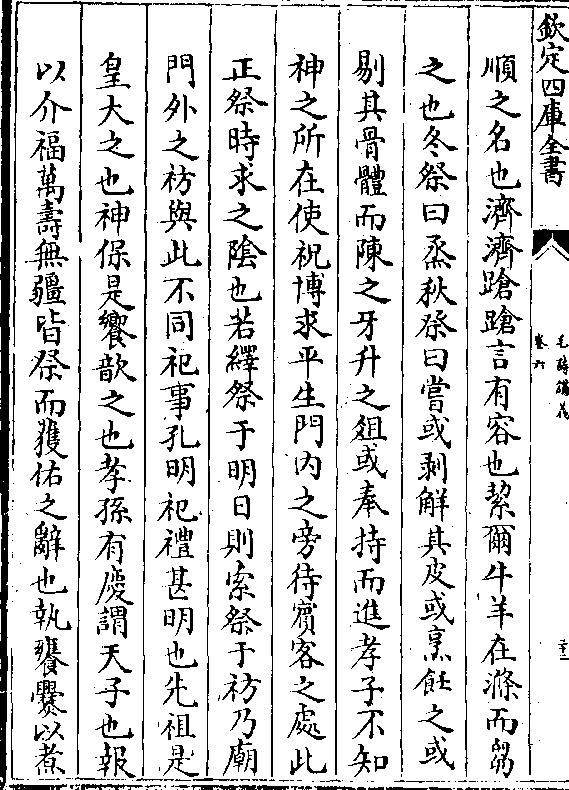 欽定四庫全書
毛詩講義
卷六
順之名也濟濟蹌蹌言有容也絜爾牛羊在滌而芻
之也冬祭曰烝秋祭曰嘗或剥解其皮或烹飪之或
剔其骨體而陳之牙升之俎或奉持而進孝子不知
神之所在使祝博求平生門内之旁待賓客之處此
正祭時求之陰也若繹祭于明日則索祭于祊乃廟
門外之祊與此不同祀事孔明祀禮甚明也先祖是
皇大之也神保是饗歆之也孝孫有慶謂天子也報
以介福萬壽無疆皆祭而獲佑之辭也執爨爨以煮